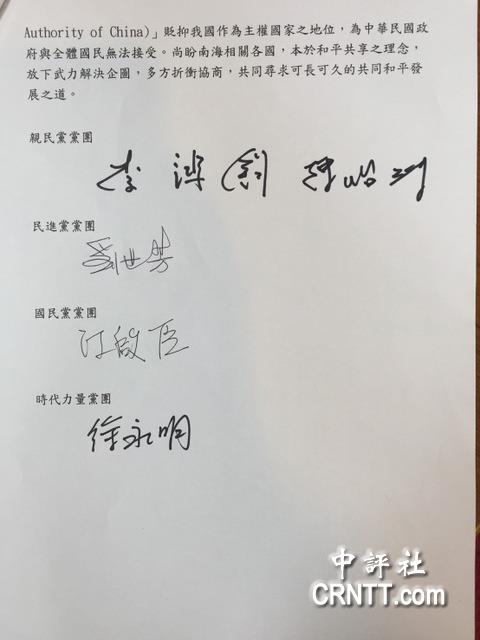 Authority of China)」貶抑我國作為主權國家之地位，為中華民國政
府與全體國民無法接受。尚盼南海相關各國，本於和平共享之理念，
放下武力解決企圖，多方折衝協商，共同尋求可長可久的共同和平發
展之道。
親民黨黨團
李鴻鈞 陳怡潔
民進黨黨團
劉世芳
國民黨黨團
江啟臣
時代力量黨團
徐永明
中評社
CRNTT.com